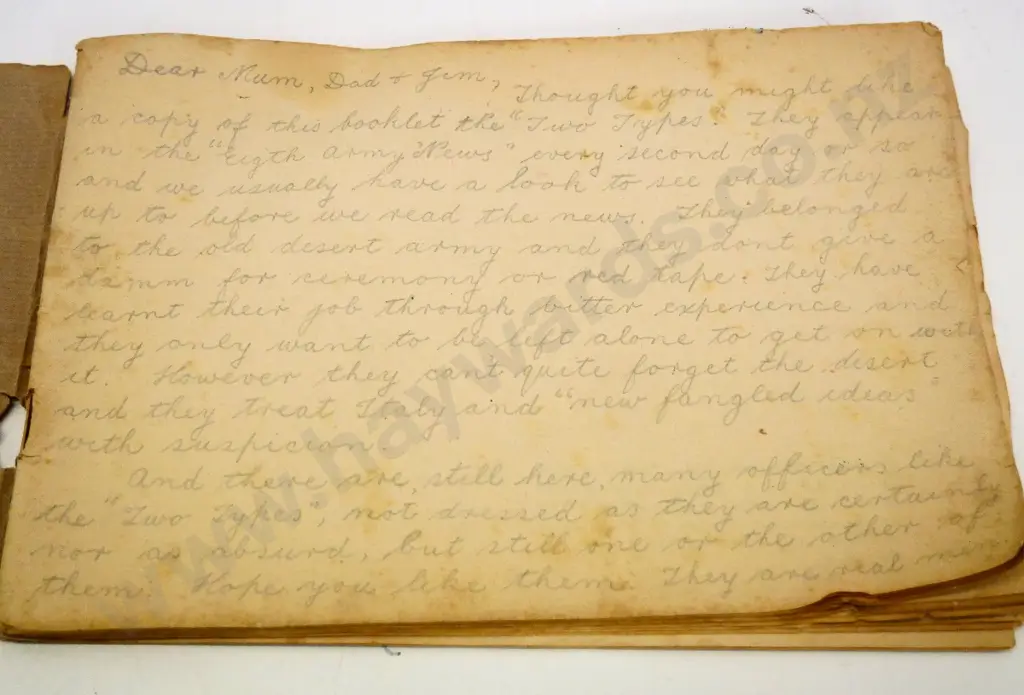 Dear Mum, Dad + Jim,
Thought you might like
a copy of this booklet the "Two Types". They appear
in the "Eigth Army News" every second day or so
and we usually have a look to see what they are
up to before we read the news. They belonged
to the old desert army and they dont give a
damm for ceremony or red tape. They have
learnt their job through bitter experience and
they only want to be left alone to get on with
it. However they can't quite forget the desert
and they treat Italy and "new fangled ideas"
with suspician.
And there are, still here, many officers like
the "Two Types", not dressed as they are certainly
nor as absurd, but still one or the other of
them. Hope you like them. They are real men
www.haywards.co.nz